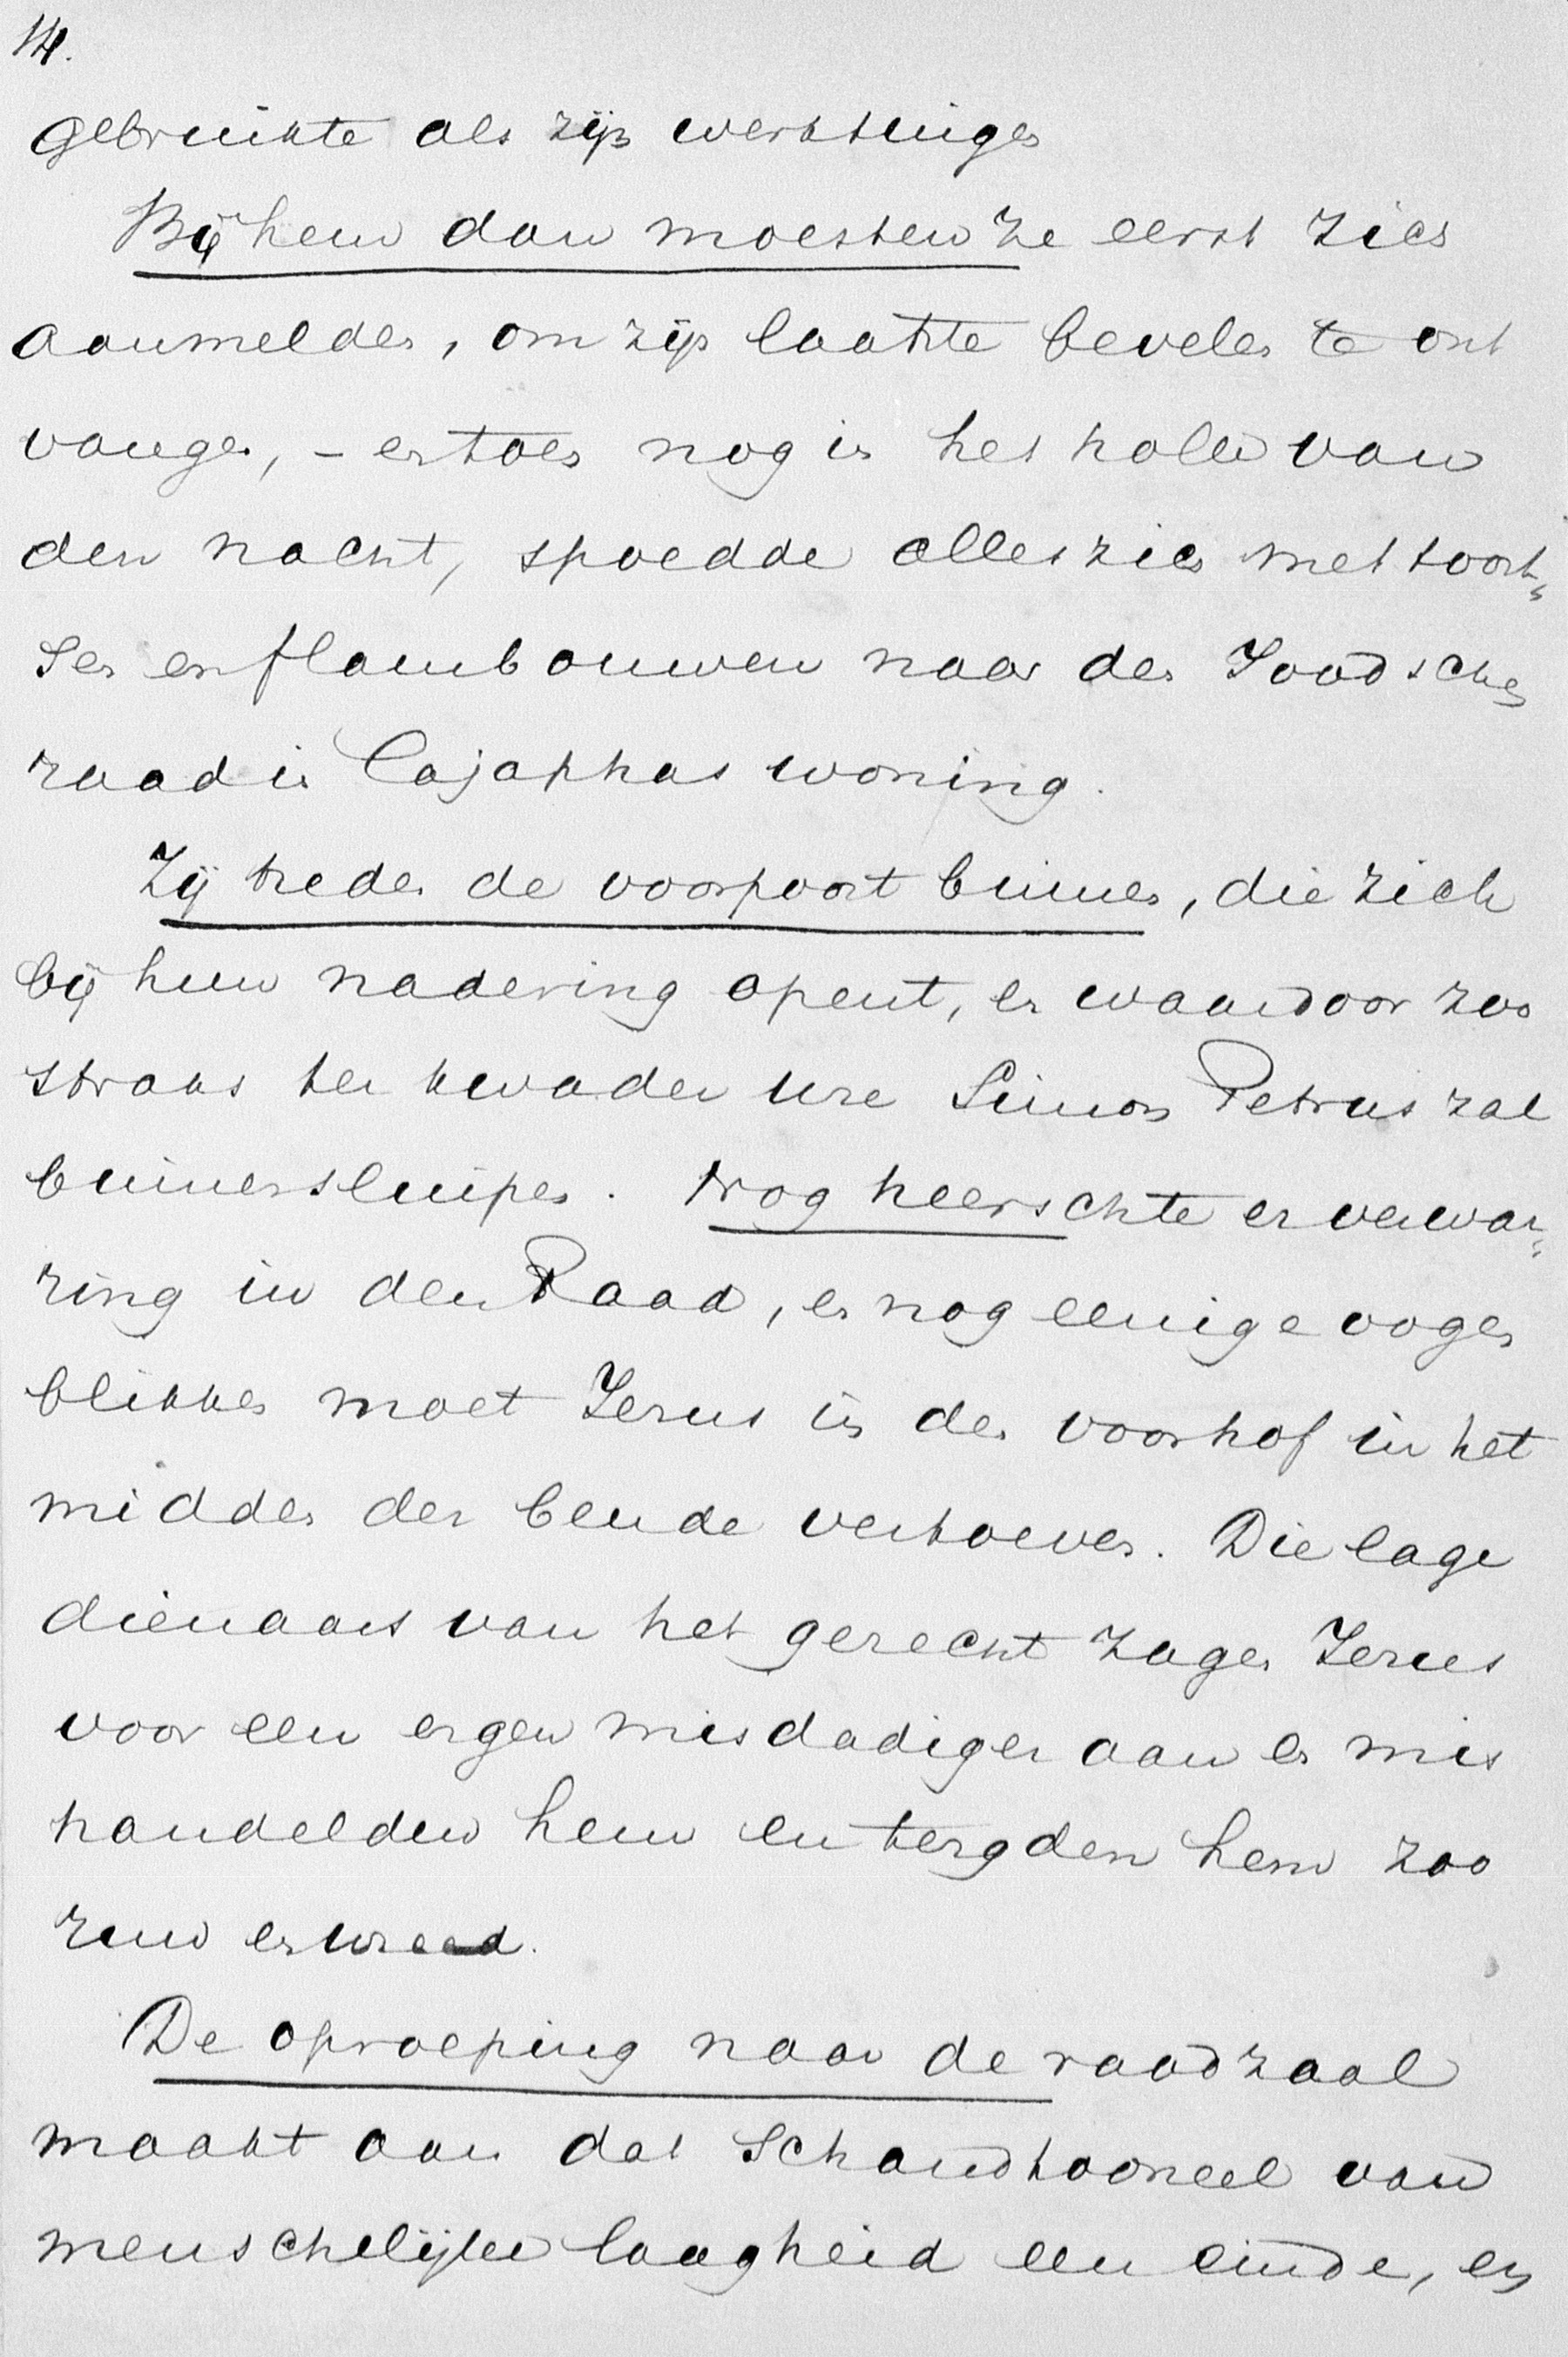 14.
gebruikte als zijn werktuigen
Bij hem dan moesten ze eerst zich
aanmelden, om zijn laatste bevelen te ont
vangen, - en toen nog in het holle van
den nacht, spoedde alles zich met toort„
sen en flambouwen naar den Joodschen
raad in Cajaphas woning.
Zij treden de voorpoort binnen, die zich
bij hun nadering opent, en waardoor zoo
straks ter kwader ure Simon Petrus zal
binnensluipen. Nog heerschte er verwar„
ring in den Raad, en nog eenige oogen
blikken moet Jezus in den voorhof in het
midden der bende vertoeven. Die lage
dienaars van het gerecht zagen Jezus
voor een ergen misdadiger aan en mis
handelden hem en tergden hem zoo
ruw en wreed.
De oproeping naar de raadzaal
maakt aan dat schandtooneel van
menschelijke laagheid een einde, en